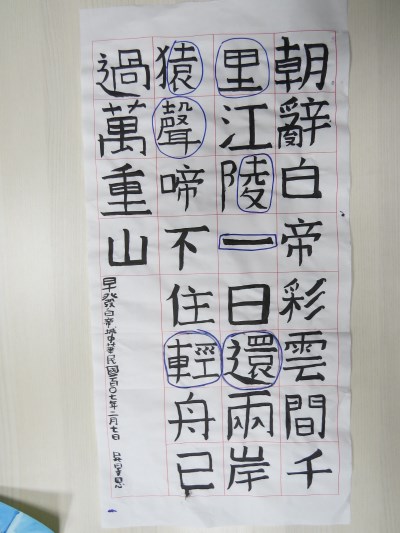 朝辭白帝彩雲間千
里江陵一日還兩岸
猿聲啼不住輕舟已
過萬重山
早發白帝城
民國一百〇七年二月七日